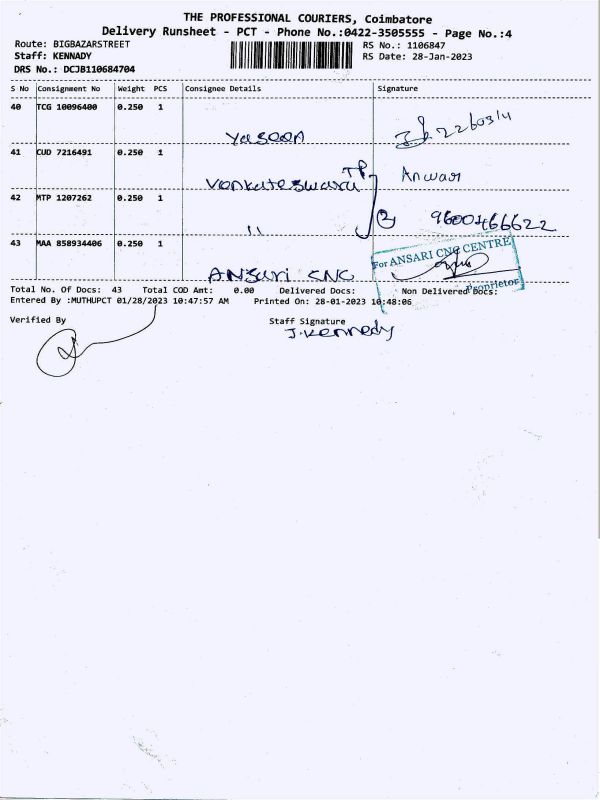 THE PROFESSIONAL COURIERS, Coimbatore
Delivery Runsheet - PCT - Phone No.:0422-3505555 - Page No.:4
Route: BIGBAZARSTREET RS No.: 1106847
Staff: KENNADY RS Date: 28-Jan-2023
DRS No.: DCJB110684704
S No Consignment No Weight PCS Consignee Details Signature
40 TCG 10096400 0.250 1
Yaseen 2260314
41 CUD 7216491 0.250 1
Venkateswara TP Anwar
42 MTP 1207262 0.250 1
" 2 9600466622
43 MAA 858934406 0.250 1
For ANSARI CNC CENTRE
ANSARI CNC
Proprietor
Total No. Of Docs: 43 Total COD Amt: 0.00 Delivered Docs: Non Delivered Docs:
Entered By :MUTHUPCT 01/28/2023 10:47:57 AM Printed On: 28-01-2023 10:48:06
Verified By Staff Signature
J. Kennedy